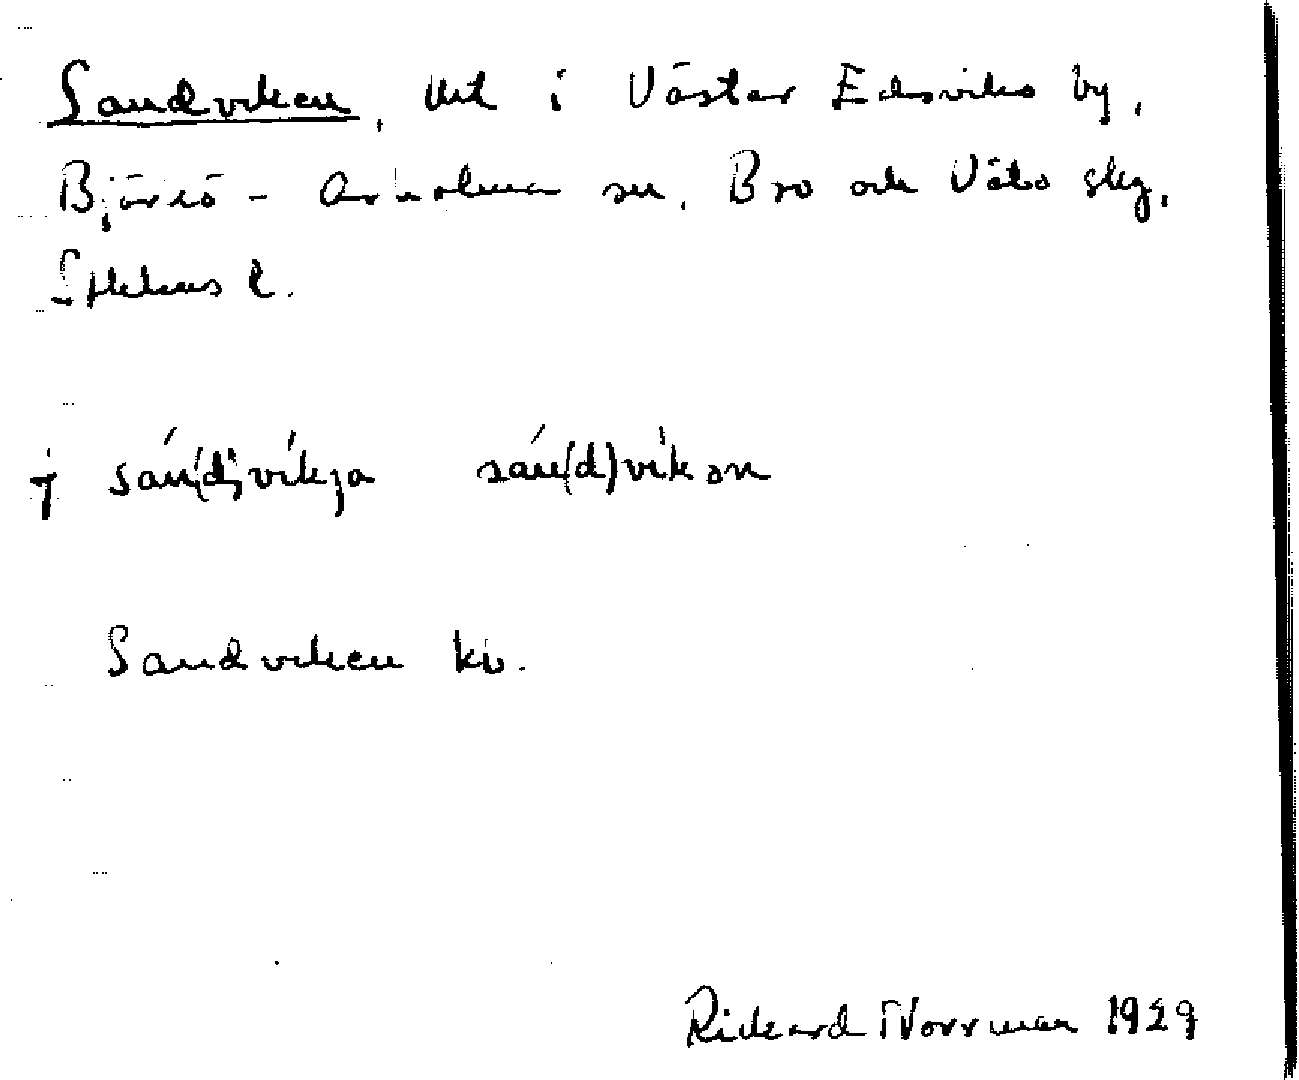 Sandviken, i Väster Edsviks by,
Björkö - Arholma sn, Bro och Vätö skg,
Sthlms l.
j sán(d)vikja sán(d)vikən
Sandviken kv.
Rickard Norrman 1929